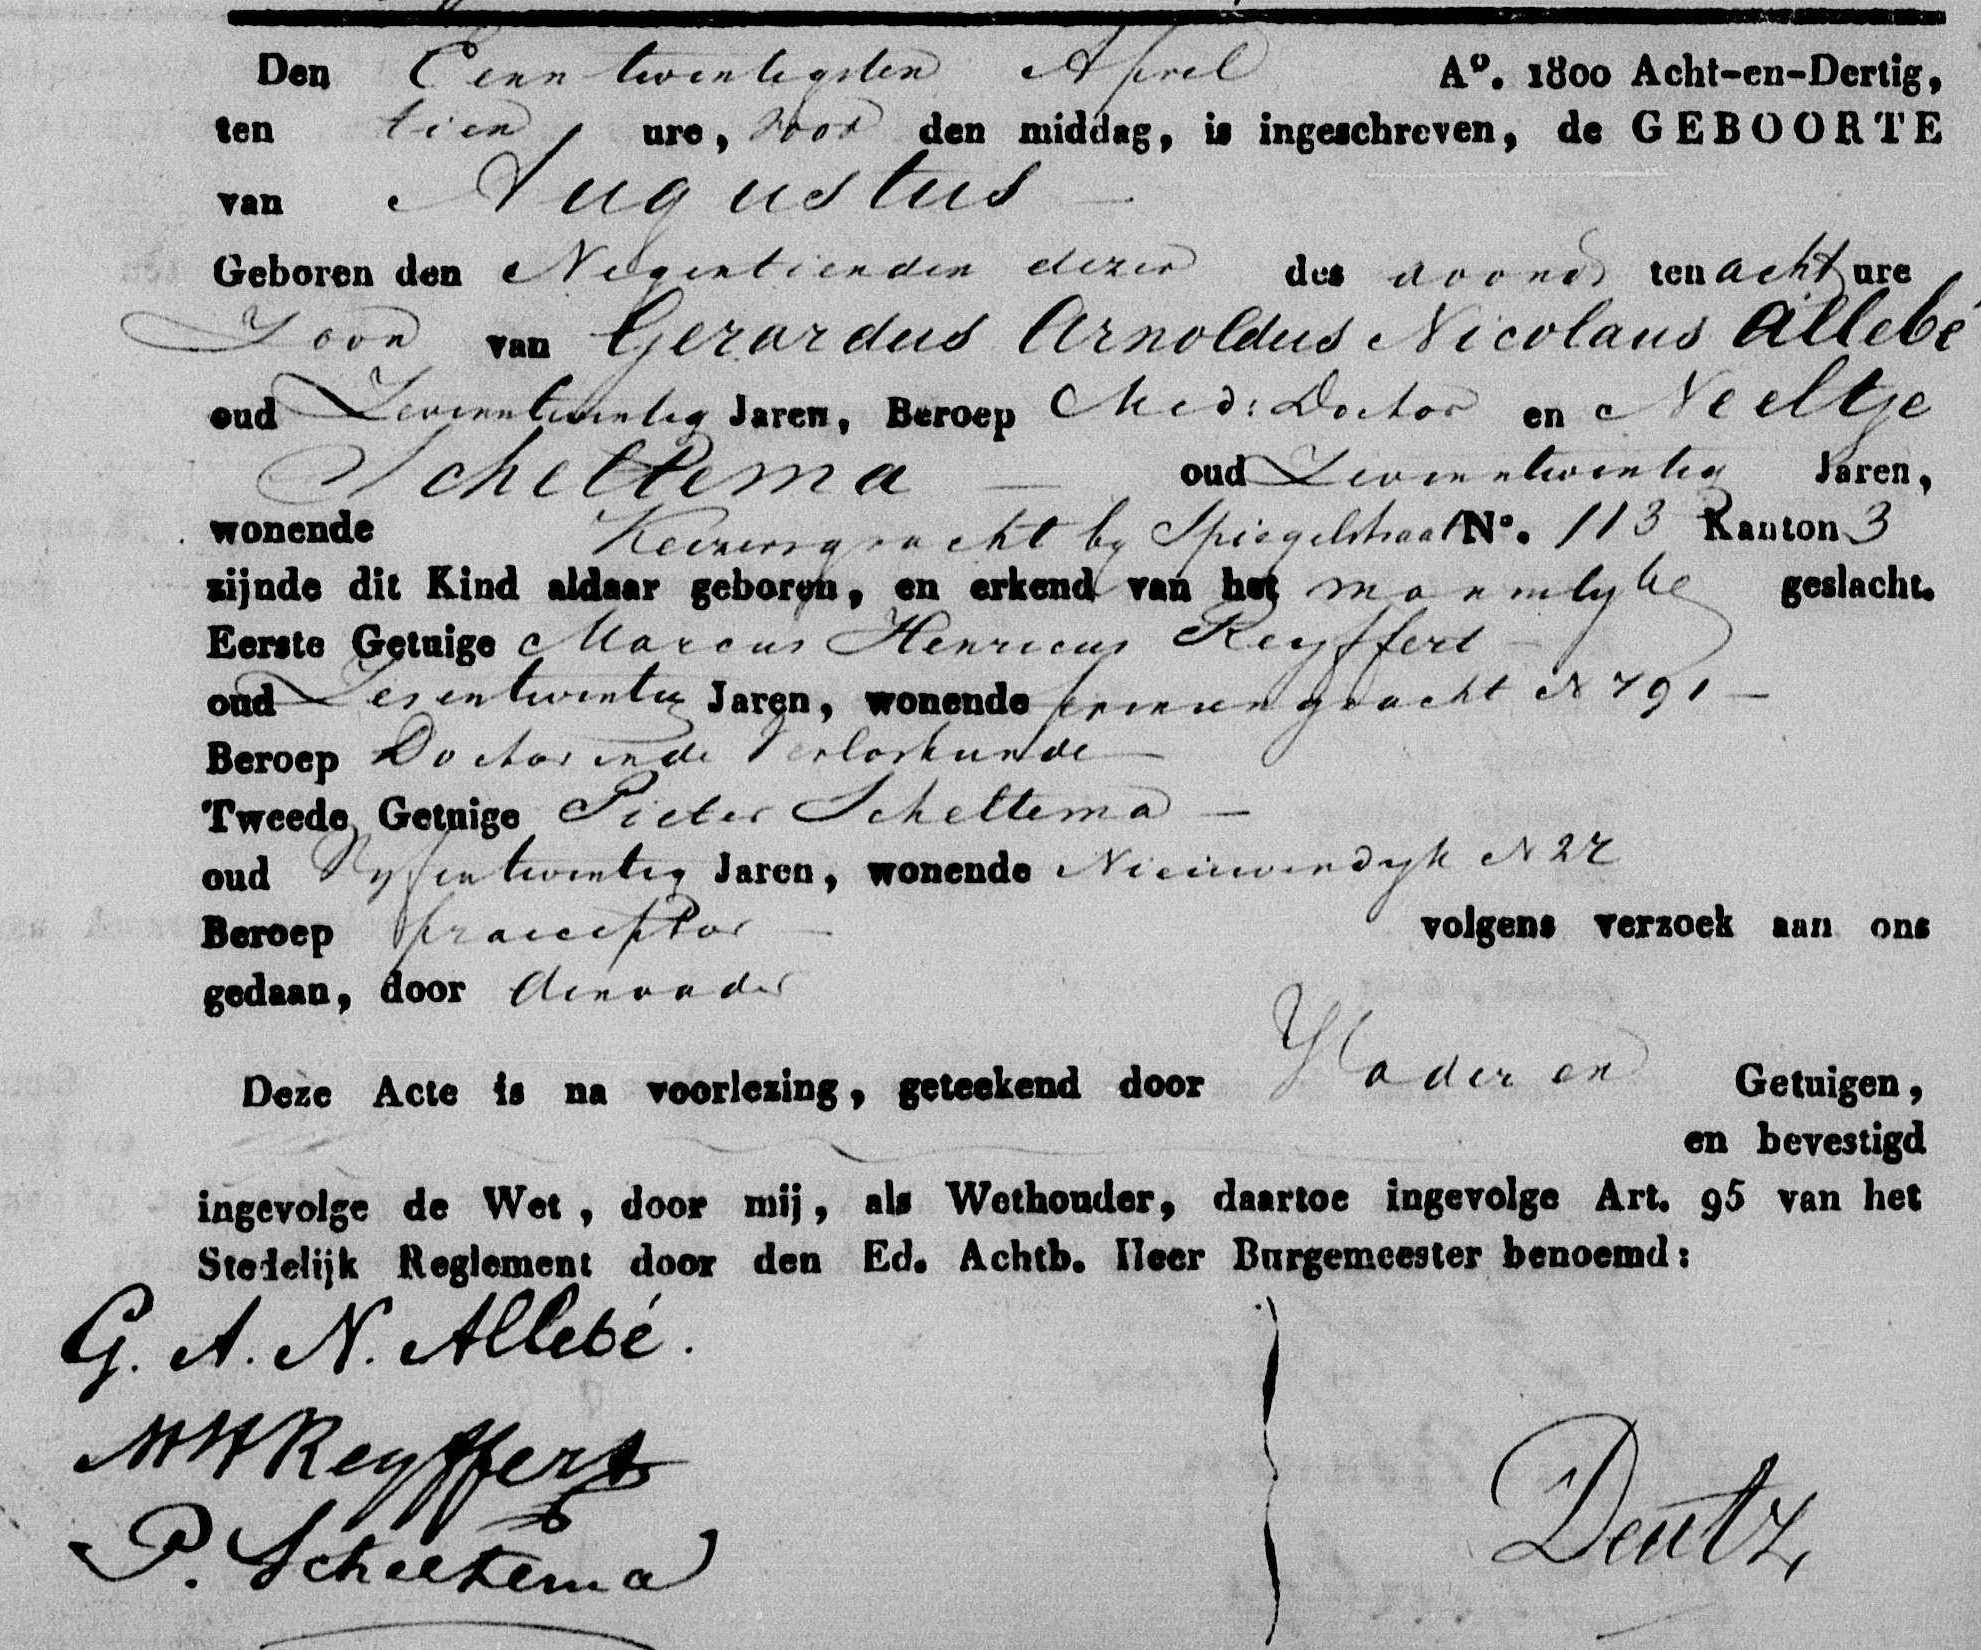 Den Eenn twentigsten April Aº. 1800 Acht-en-Dertig,
ten tien ure, voor den middag, is ingeschreven, de GEBOORTE
van Augustus
Geboren den Negentienden dezer des avonds ten acht ure
Zoon van Gerardus Arnoldus Nicolaus Allebé
oud Zevenentwintig Jaren, Beroep Med: Doctor en Neeltje
Scheltema oud Zevenentwintig Jaren,
wonende Keizersgracht by Spiegelstraat Nº. 113 Kanton 3
zijnde dit Kind aldaar geboren, en erkend van het mannelyke geslacht.
Eerste Getuige Marcus Henricus Reyffert
oud Zesentwintig Jaren, wonende prinsengracht N 791
Beroep Doctor in de Verloskunde
Tweede Getuige Pieter Scheltema
oud Vyfentwintig Jaren, wonende Nieuwendyk N 22
Beroep praeceptor volgens verzoek aan ons
gedaan, door den vader
Deze Acte is na voorlezing, geteekend door Vader en Getuigen,
en bevestigd
ingevolge de Wet, door mij, als Wethouder, daartoe ingevolge Art. 95 van het
Stedelijk Reglement door den Ed. Achtb. Heer Burgemeester benoemd:
G. A. N. Allebé.
MHReyffert
P. Scheltema
Deutz